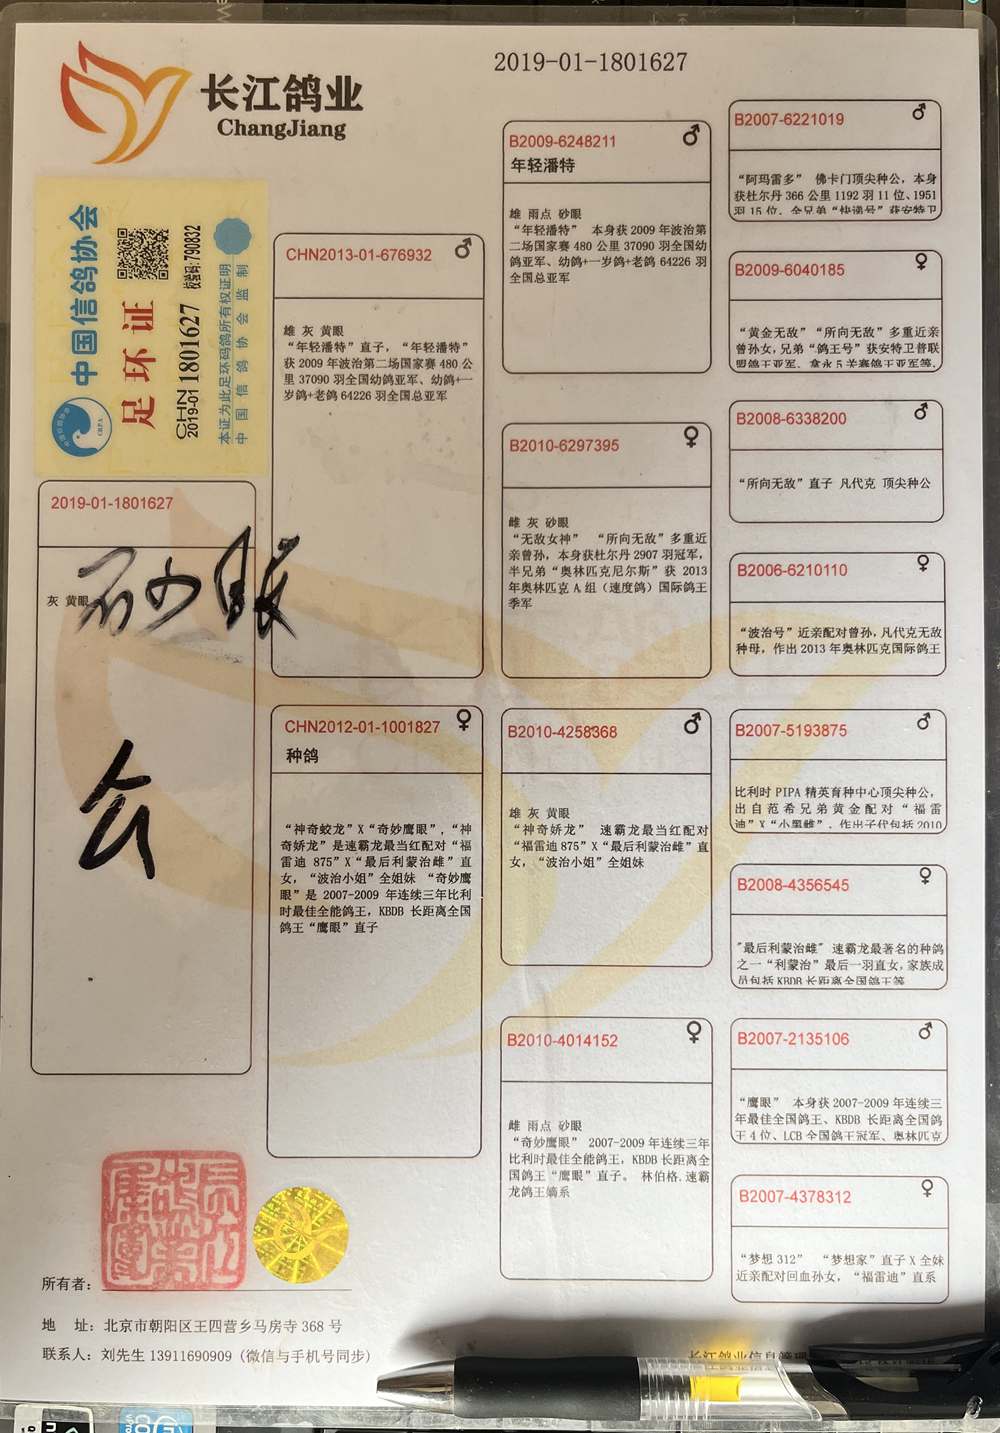 2019-01-1801627
长江鸽业
ChangJiang
中国信鸽协会
足环证
CHN
2019-01 1801627
校验码:790832
本证为此足环码鸽所有权证明
中国信鸽协会监制
CRPA
2019-01-1801627
灰 黄眼
砂眼
CHN2013-01-676932 ♂
雄 灰 黄眼
“年轻潘特”直子，“年轻潘特”
获 2009 年波治第二场国家赛 480 公
里 37090 羽全国幼鸽亚军、幼鸽+一
岁鸽+老鸽 64226 羽全国总亚军
CHN2012-01-1001827 ♀
种鸽
“神奇蛟龙”X“奇妙鹰眼”，“神
奇娇龙”是速霸龙最当红配对“福
雷迪 875”X“最后利蒙治雌”直
女，“波治小姐”全姐妹 “奇妙鹰
眼”是 2007-2009 年连续三年比利
时最佳全能鸽王，KBDB 长距离全国
鸽王“鹰眼”直子
B2009-6248211 ♂
年轻潘特
雄 雨点 砂眼
“年轻潘特” 本身获 2009 年波治第
二场国家赛 480 公里 37090 羽全国幼
鸽亚军、幼鸽+一岁鸽+老鸽 64226 羽
全国总亚军
B2010-6297395 ♀
雌 灰 砂眼
“无敌女神” “所向无敌”多重近
亲曾孙，本身获杜尔丹 2907 羽冠军，
半兄弟“奥林匹克尼尔斯”获 2013
年奥林匹克 A 组（速度鸽）国际鸽王
季军
B2010-4258368 ♂
雄 灰 黄眼
“神奇娇龙” 速霸龙最当红配对
“福雷迪 875”X“最后利蒙治雌”直
女，“波治小姐”全姐妹
B2010-4014152 ♀
雌 雨点 砂眼
“奇妙鹰眼” 2007-2009 年连续三年
比利时最佳全能鸽王，KBDB 长距离全
国鸽王“鹰眼”直子。 林伯格.速霸
龙鸽王嫡系
B2007-6221019 ♂
“阿玛雷多” 佛卡门顶尖种公，本身
获杜尔丹 366 公里 1192 羽 11 位、1951
羽 15 位，全兄弟“快递号”获安特卫
B2009-6040185 ♀
“黄金无敌”“所向无敌”多重近亲
曾孙女，兄弟“鸽王号”获安特卫普联
盟鸽王亚军、拿永 5 关赛鸽王亚军等，
B2008-6338200 ♂
“所向无敌”直子 凡代克 顶尖种公
B2006-6210110 ♀
“波治号”近亲配对曾孙，凡代克无敌
种母，作出 2013 年奥林匹克国际鸽王
B2007-5193875 ♂
比利时 PIPA 精英育种中心顶尖种公，
出自范希兄弟黄金配对“福雷
迪”X“小黑雌”，作出子代包括 2010
B2008-4356545 ♀
"最后利蒙治雌" 速霸龙最著名的种鸽
之一“利蒙治”最后一羽直女，家族成
员包括 KBDB 长距离全国鸽王等
B2007-2135106 ♂
“鹰眼” 本身获 2007-2009 年连续三
年最佳全国鸽王、KBDB 长距离全国鸽
王 4 位、LCB 全国鸽王冠军、奥林匹克
B2007-4378312 ♀
“梦想 312” “梦想家”直子 X 全妹
近亲配对回血孙女，“福雷迪”直系
所有者：
地 址：北京市朝阳区王四营乡马房寺 368 号
联系人：刘先生 13911690909 (微信与手机号同步)
长江鸽业信息管理